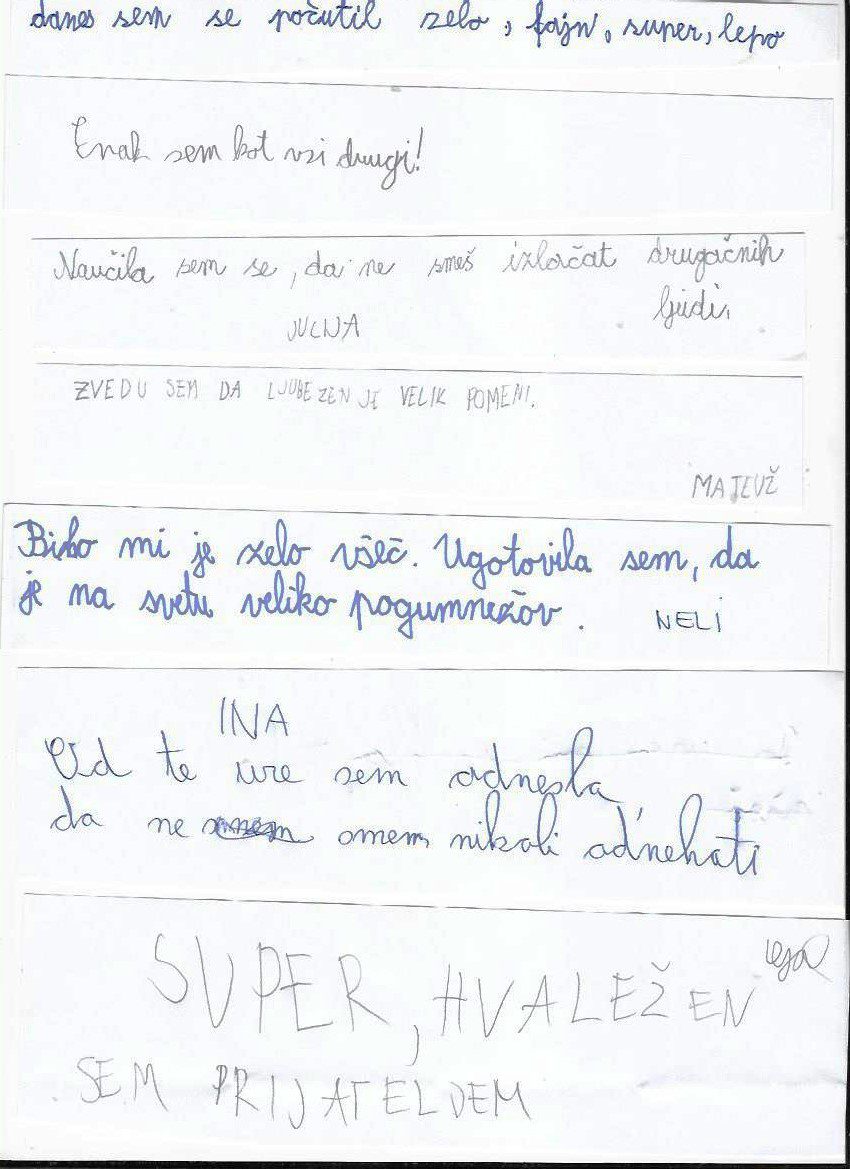 danes sem se počutil zelo, fajn, super, lepo
Enak sem kot vsi drugi!
Naučila sem se, da ne smeš izločat drugačnih
ljudi.
JULIJA
ZVEDU SEM DA LJUBEZEN JE VELIK POMENI.
MATEVŽ
Bilo mi je zelo všeč. Ugotovila sem, da
je na svetu veliko pogumnežov. NELI
INA
Od te ure sem odnesla,
da ne smem nikoli odnehati
SUPER, HVALEŽEN
SEM PRIJATELJEM